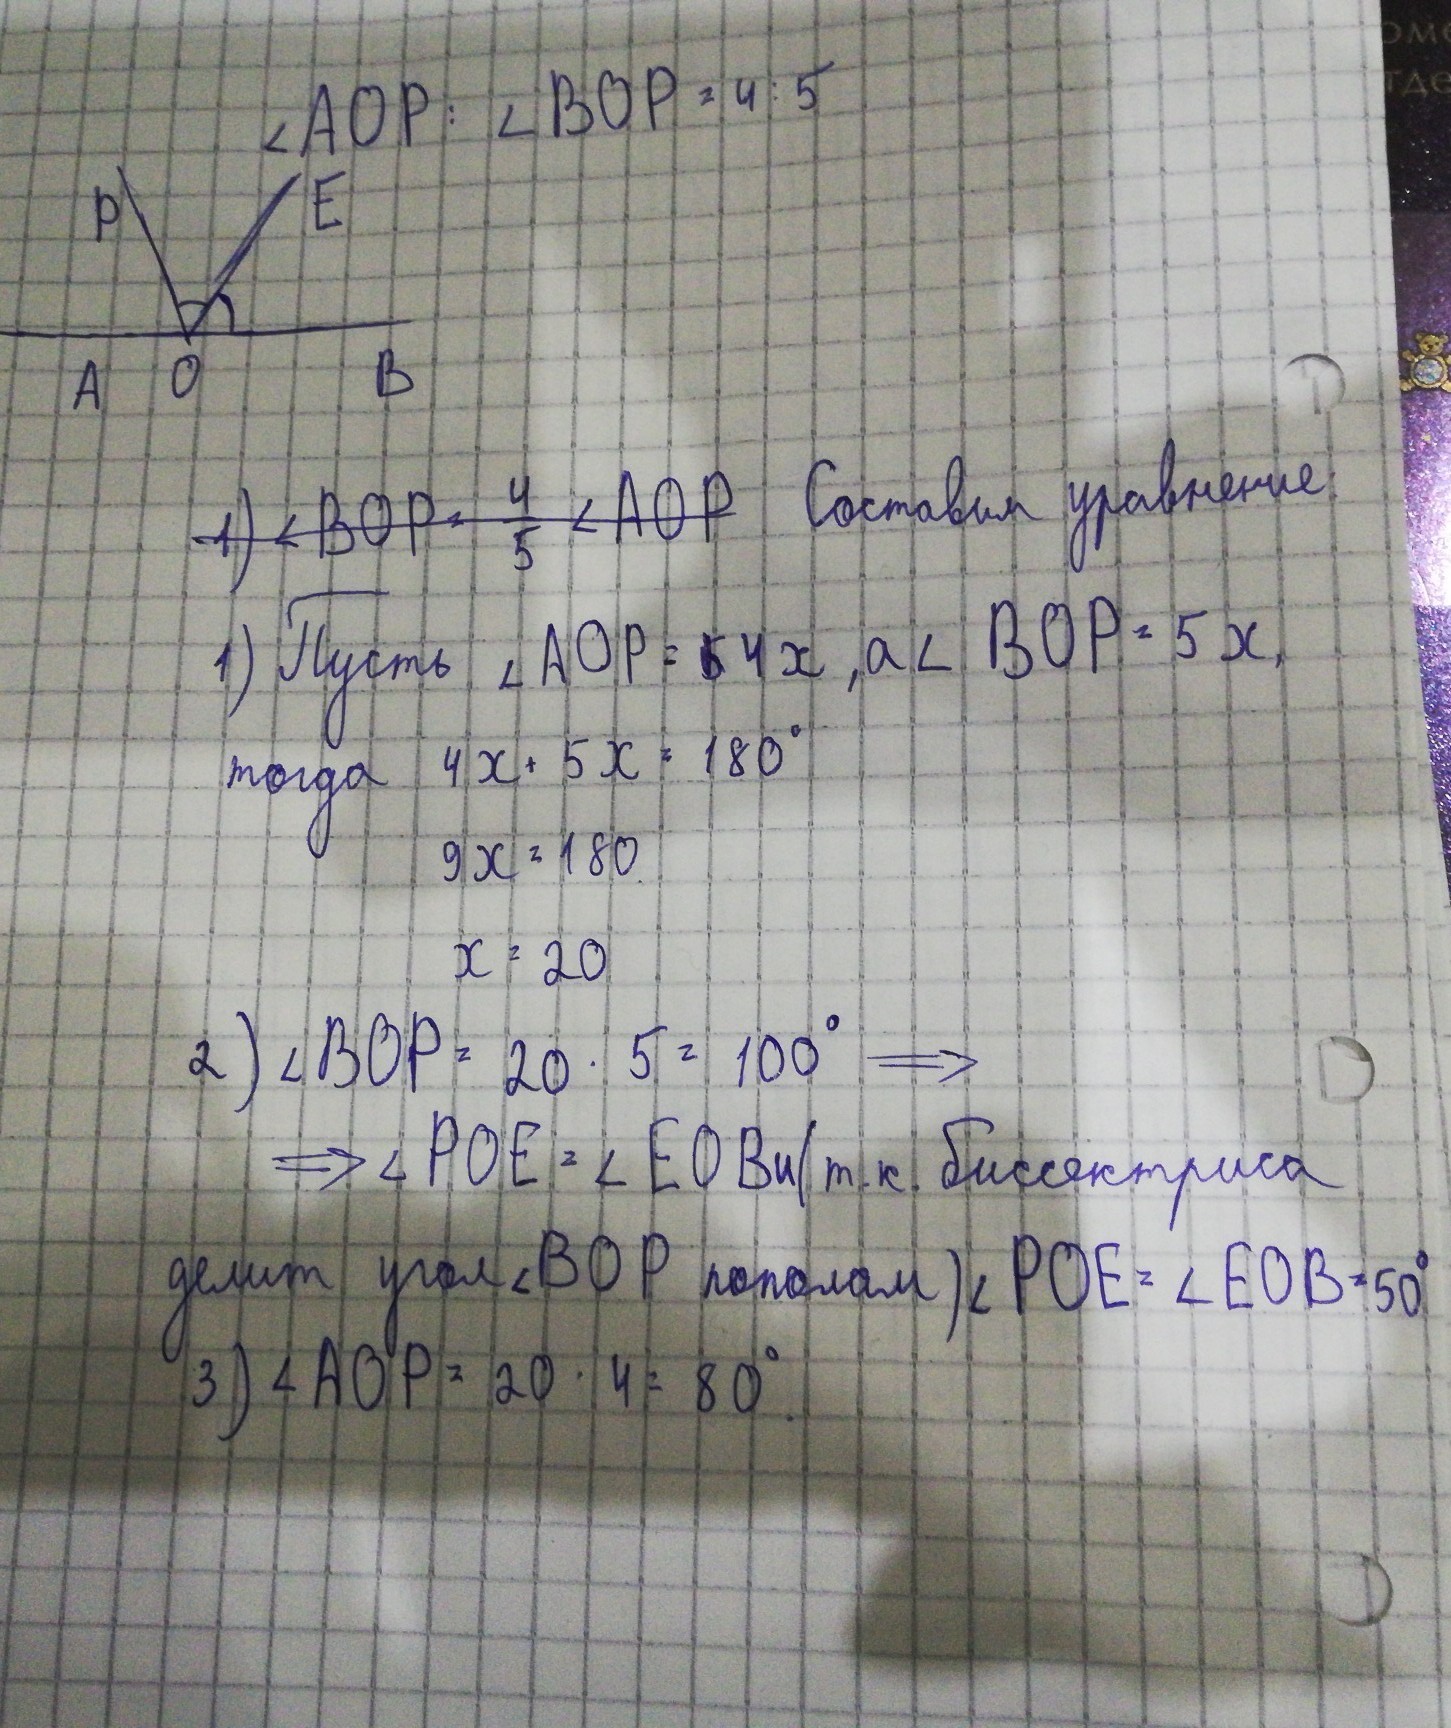 ∠AOP : ∠BOP = 4 : 5
P E
A O B
1) ∠BOP = 4/5 ∠AOP Составим уравнение
1) Пусть ∠AOP = 4x, а ∠BOP = 5x,
тогда 4x + 5x = 180°
9x = 180
x = 20
2) ∠BOP = 20 · 5 = 100° ⟹
⟹ ∠POE = ∠EOB и (т.к. биссектриса
делит угол ∠BOP пополам) ∠POE = ∠EOB = 50°
3) ∠AOP = 20 · 4 = 80°.